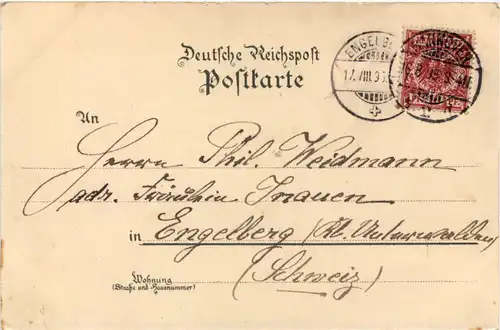 Deutsche Reichspost
Postkarte
ENGELBE
17.VIII.95
An
Herrn Phil. Weidmann
adr. Fräulein Inauen
in Engelberg (Kt. Unterwalden)
(Schweiz)
Wohnung
(Straße und Hausnummer)